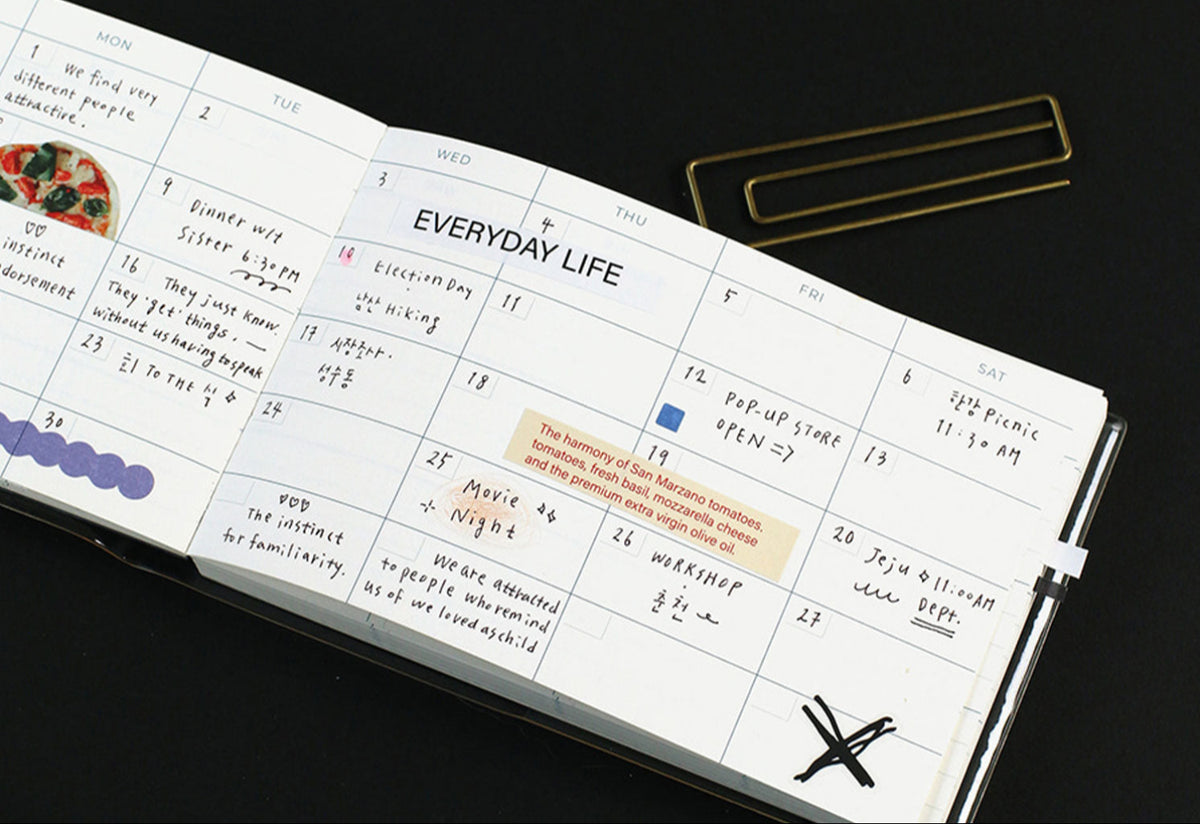 MON
TUE
WED
THU
FRI
SAT
1
We find very
different people
attractive.
2
3
EVERYDAY LIFE
4
5
6
한강 Picnic
11:30 AM
instinct
9
Dinner w/t
Sister 6:30 PM
10
Election Day
남산 Hiking
11
12
POP-UP STORE
OPEN =>
13
16
They just know.
They 'get' things.
without us having to speak
17
시장조사.
성수동
18
19
The harmony of San Marzano tomatoes.
tomatoes, fresh basil, mozzarella cheese
and the premium extra virgin olive oil.
20
Jeju 11:00AM
Dept.
23
회 TO THE 식
24
25
Movie
Night
26
WORKSHOP
춘천
27
30
The instinct
for familiarity.
We are attracted
to people who remind
us of we loved as child